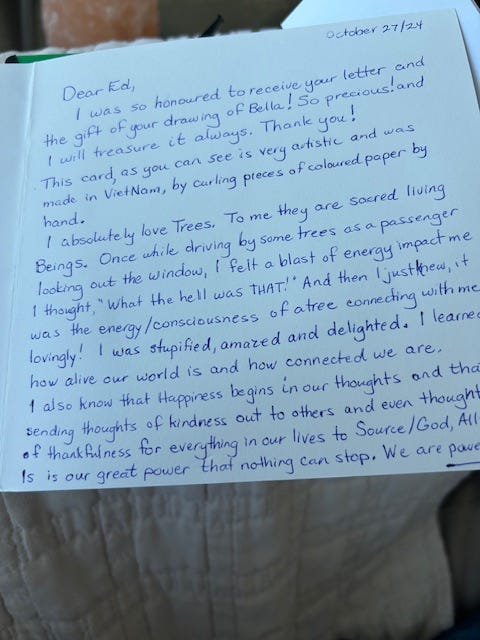 October 27/24
Dear Ed,
I was so honoured to receive your letter and
the gift of your drawing of Bella! So precious! and
I will treasure it always. Thank you!
This card, as you can see is very artistic and was
made in VietNam, by curling pieces of coloured paper by
hand.
I absolutely love Trees. To me they are sacred living
Beings. Once while driving by some trees as a passenger
looking out the window, I felt a blast of energy impact me
I thought, "What the hell was THAT!" And then I just knew, it
was the energy/consciousness of a tree connecting with me
lovingly! I was stupified, amazed and delighted. I learned
how alive our world is and how connected we are.
I also know that Happiness begins in our thoughts and tha
sending thoughts of kindness out to others and even thought
of thankfulness for everything in our lives to Source/God, All
Is is our great power that nothing can stop. We are powe